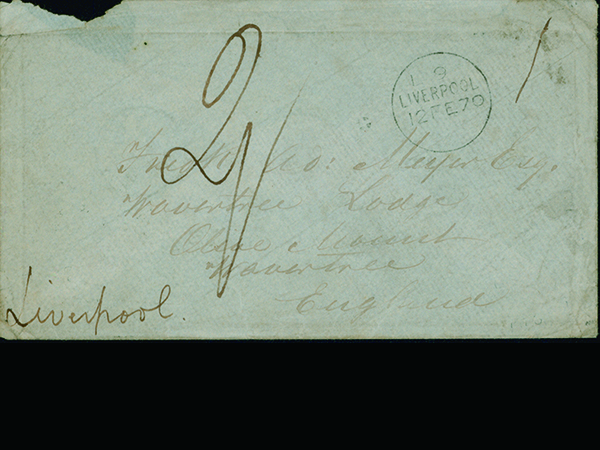 2/
1
1 9
LIVERPOOL
12 FE 70
Meyer Esq.
Wavertree Lodge
Olive Mount
Wavertree
England
Liverpool.